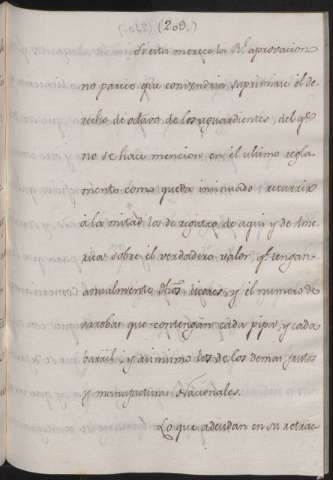 (209.)
Si esta merece la Rl. aprovacion
no parece que convendria suprimir el de-
recho de octavo de los aguardientes, del qe.
no se hace mencion en el ultimo regla-
mento como queda insinuado; recurrir
á la mitad los de registro de aqui y de Ame-
rica sobre el verdadero valor, qe. tengan
anualmente dhos. licores, y el numero de
arrobas que contengan cada pipa, y cada
barril; y asimismo los de los demas frutos
y manufacturas Nacionales.
Lo que adeudan en su retrac-